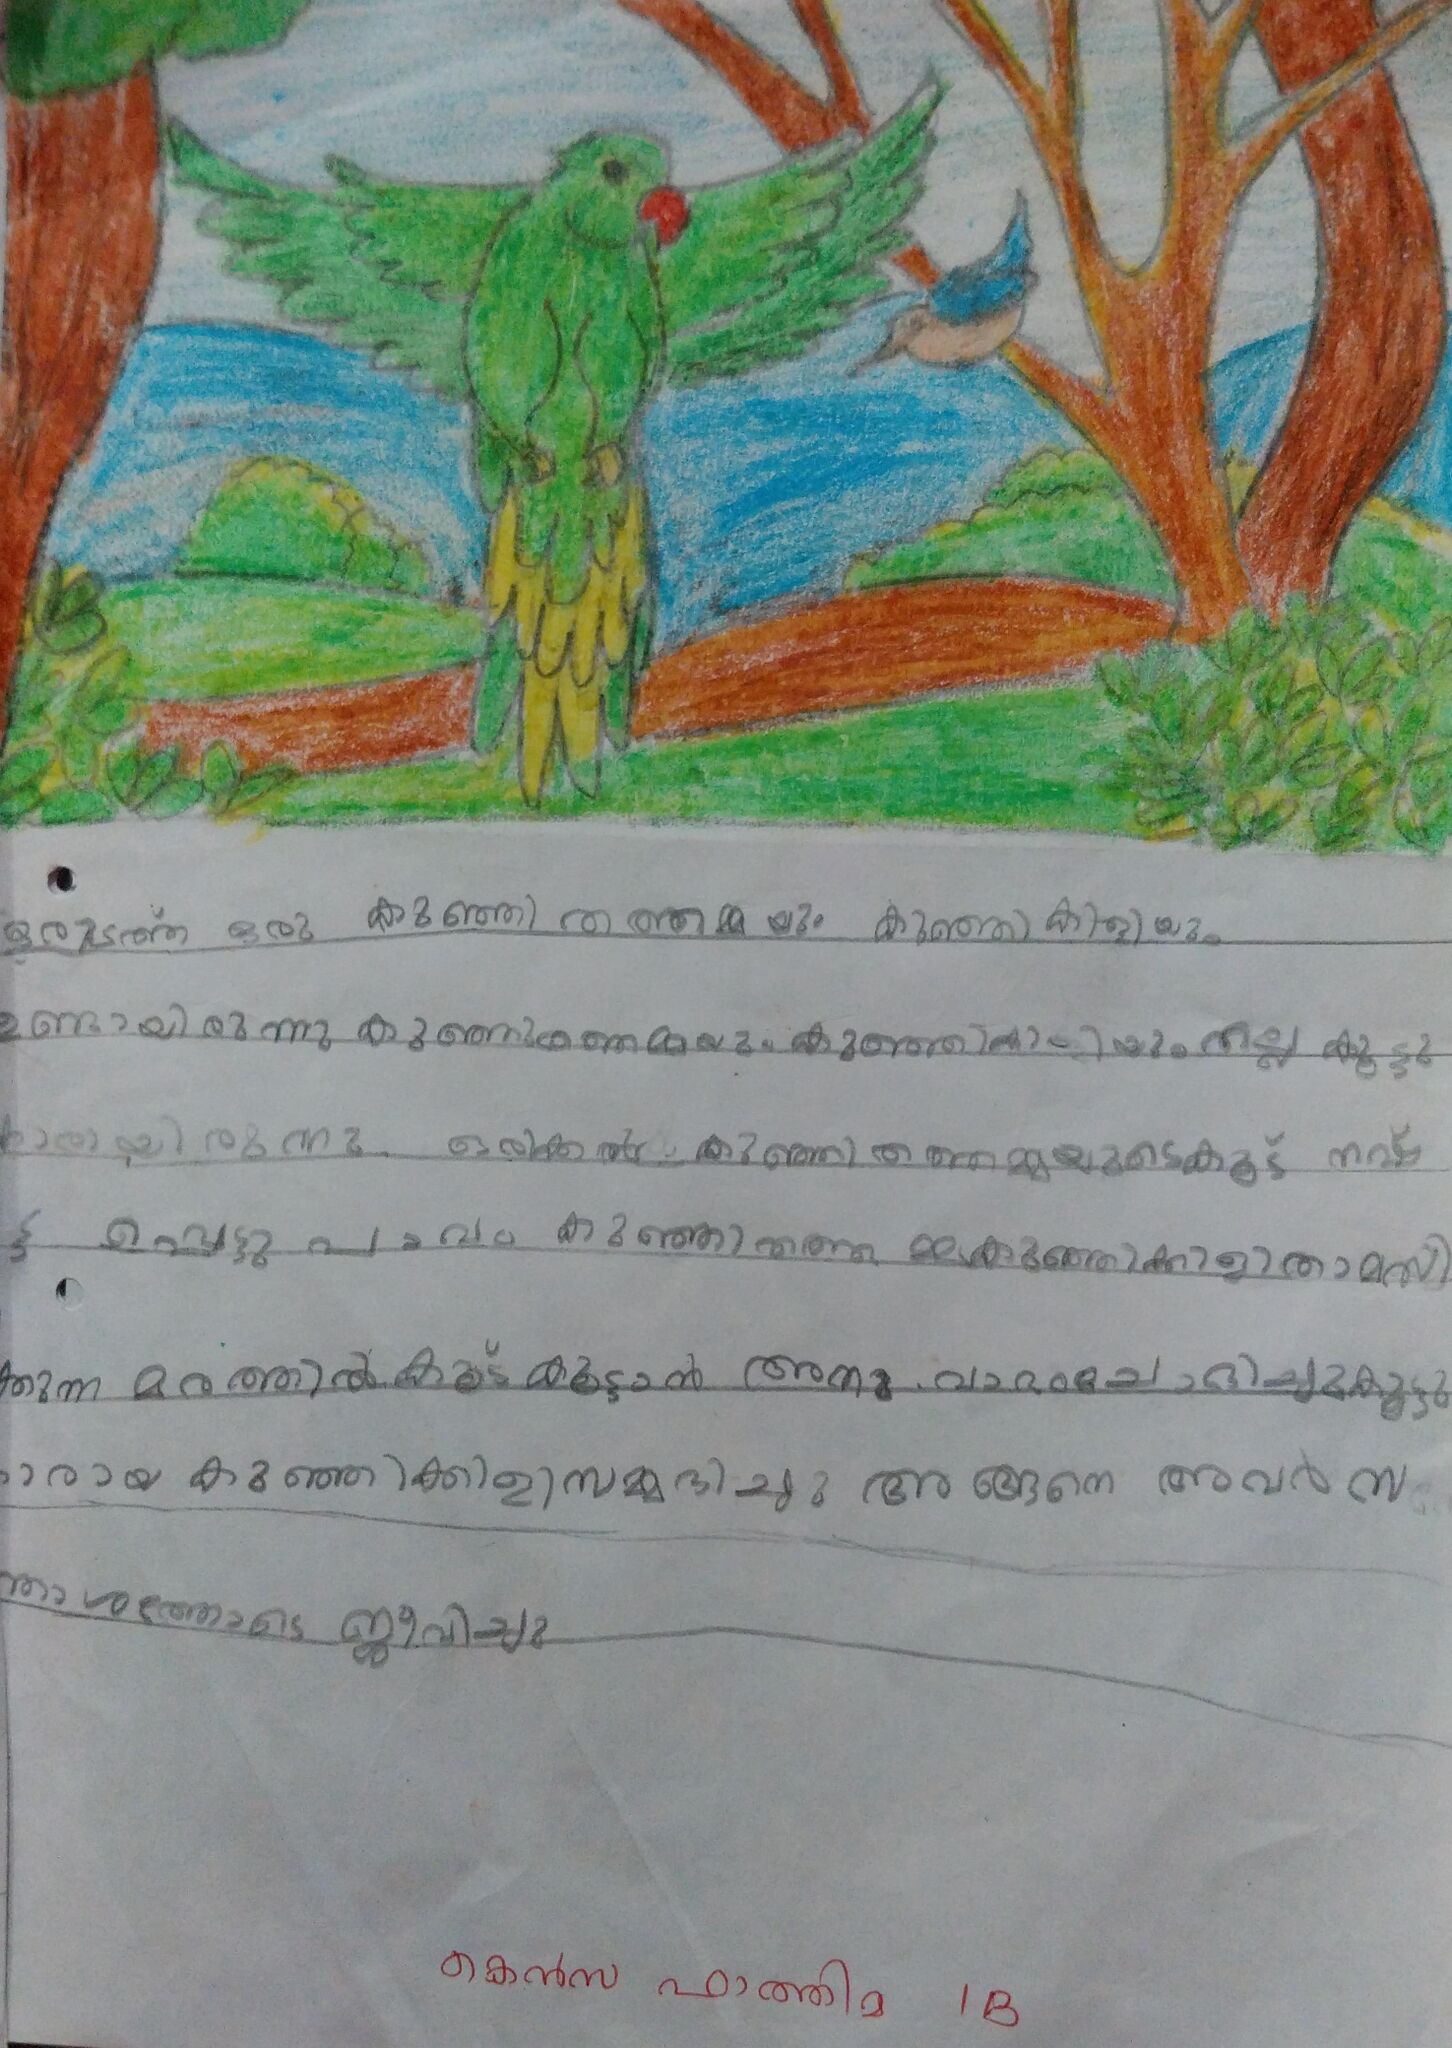 ഒരുടത്ത് ഒരു കുഞ്ഞി തത്തമ്മയും കുഞ്ഞി കിളിയും
ഉണ്ടായിരുന്നു കുഞ്ഞിതത്തമ്മയും കുഞ്ഞികിളിയും നല്ല കൂട്ടു
കാരായിരുന്നു. ഒരിക്കൽ കുഞ്ഞി തത്തമ്മയുടെകൂട് നഷ്
ട്ട പ്പെട്ടു പാവം കുഞ്ഞിതത്ത മ്മകുഞ്ഞിക്കിളിതാമസി
ക്കുന്ന മരത്തിൽ കൂട് കൂട്ടാൻ അനുവാദംചോദിച്ചുകൂട്ടു
കാരായ കുഞ്ഞിക്കിളിസമ്മദിച്ചു അങ്ങനെ അവർ സ
ന്തോശത്തോടെ ജീവിച്ചു
കെൻസ ഫാത്തിമ 1B